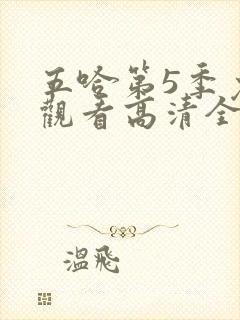 五哈第5季
觀看高清全
溫飛